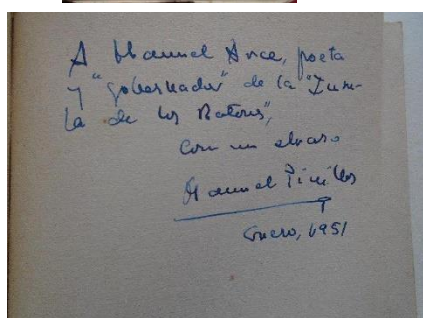 A Manuel Arce, poeta
y "gobernador" de la "Isla
de los Ratones",
con un abrazo
Manuel Pinillos
Enero, 1951